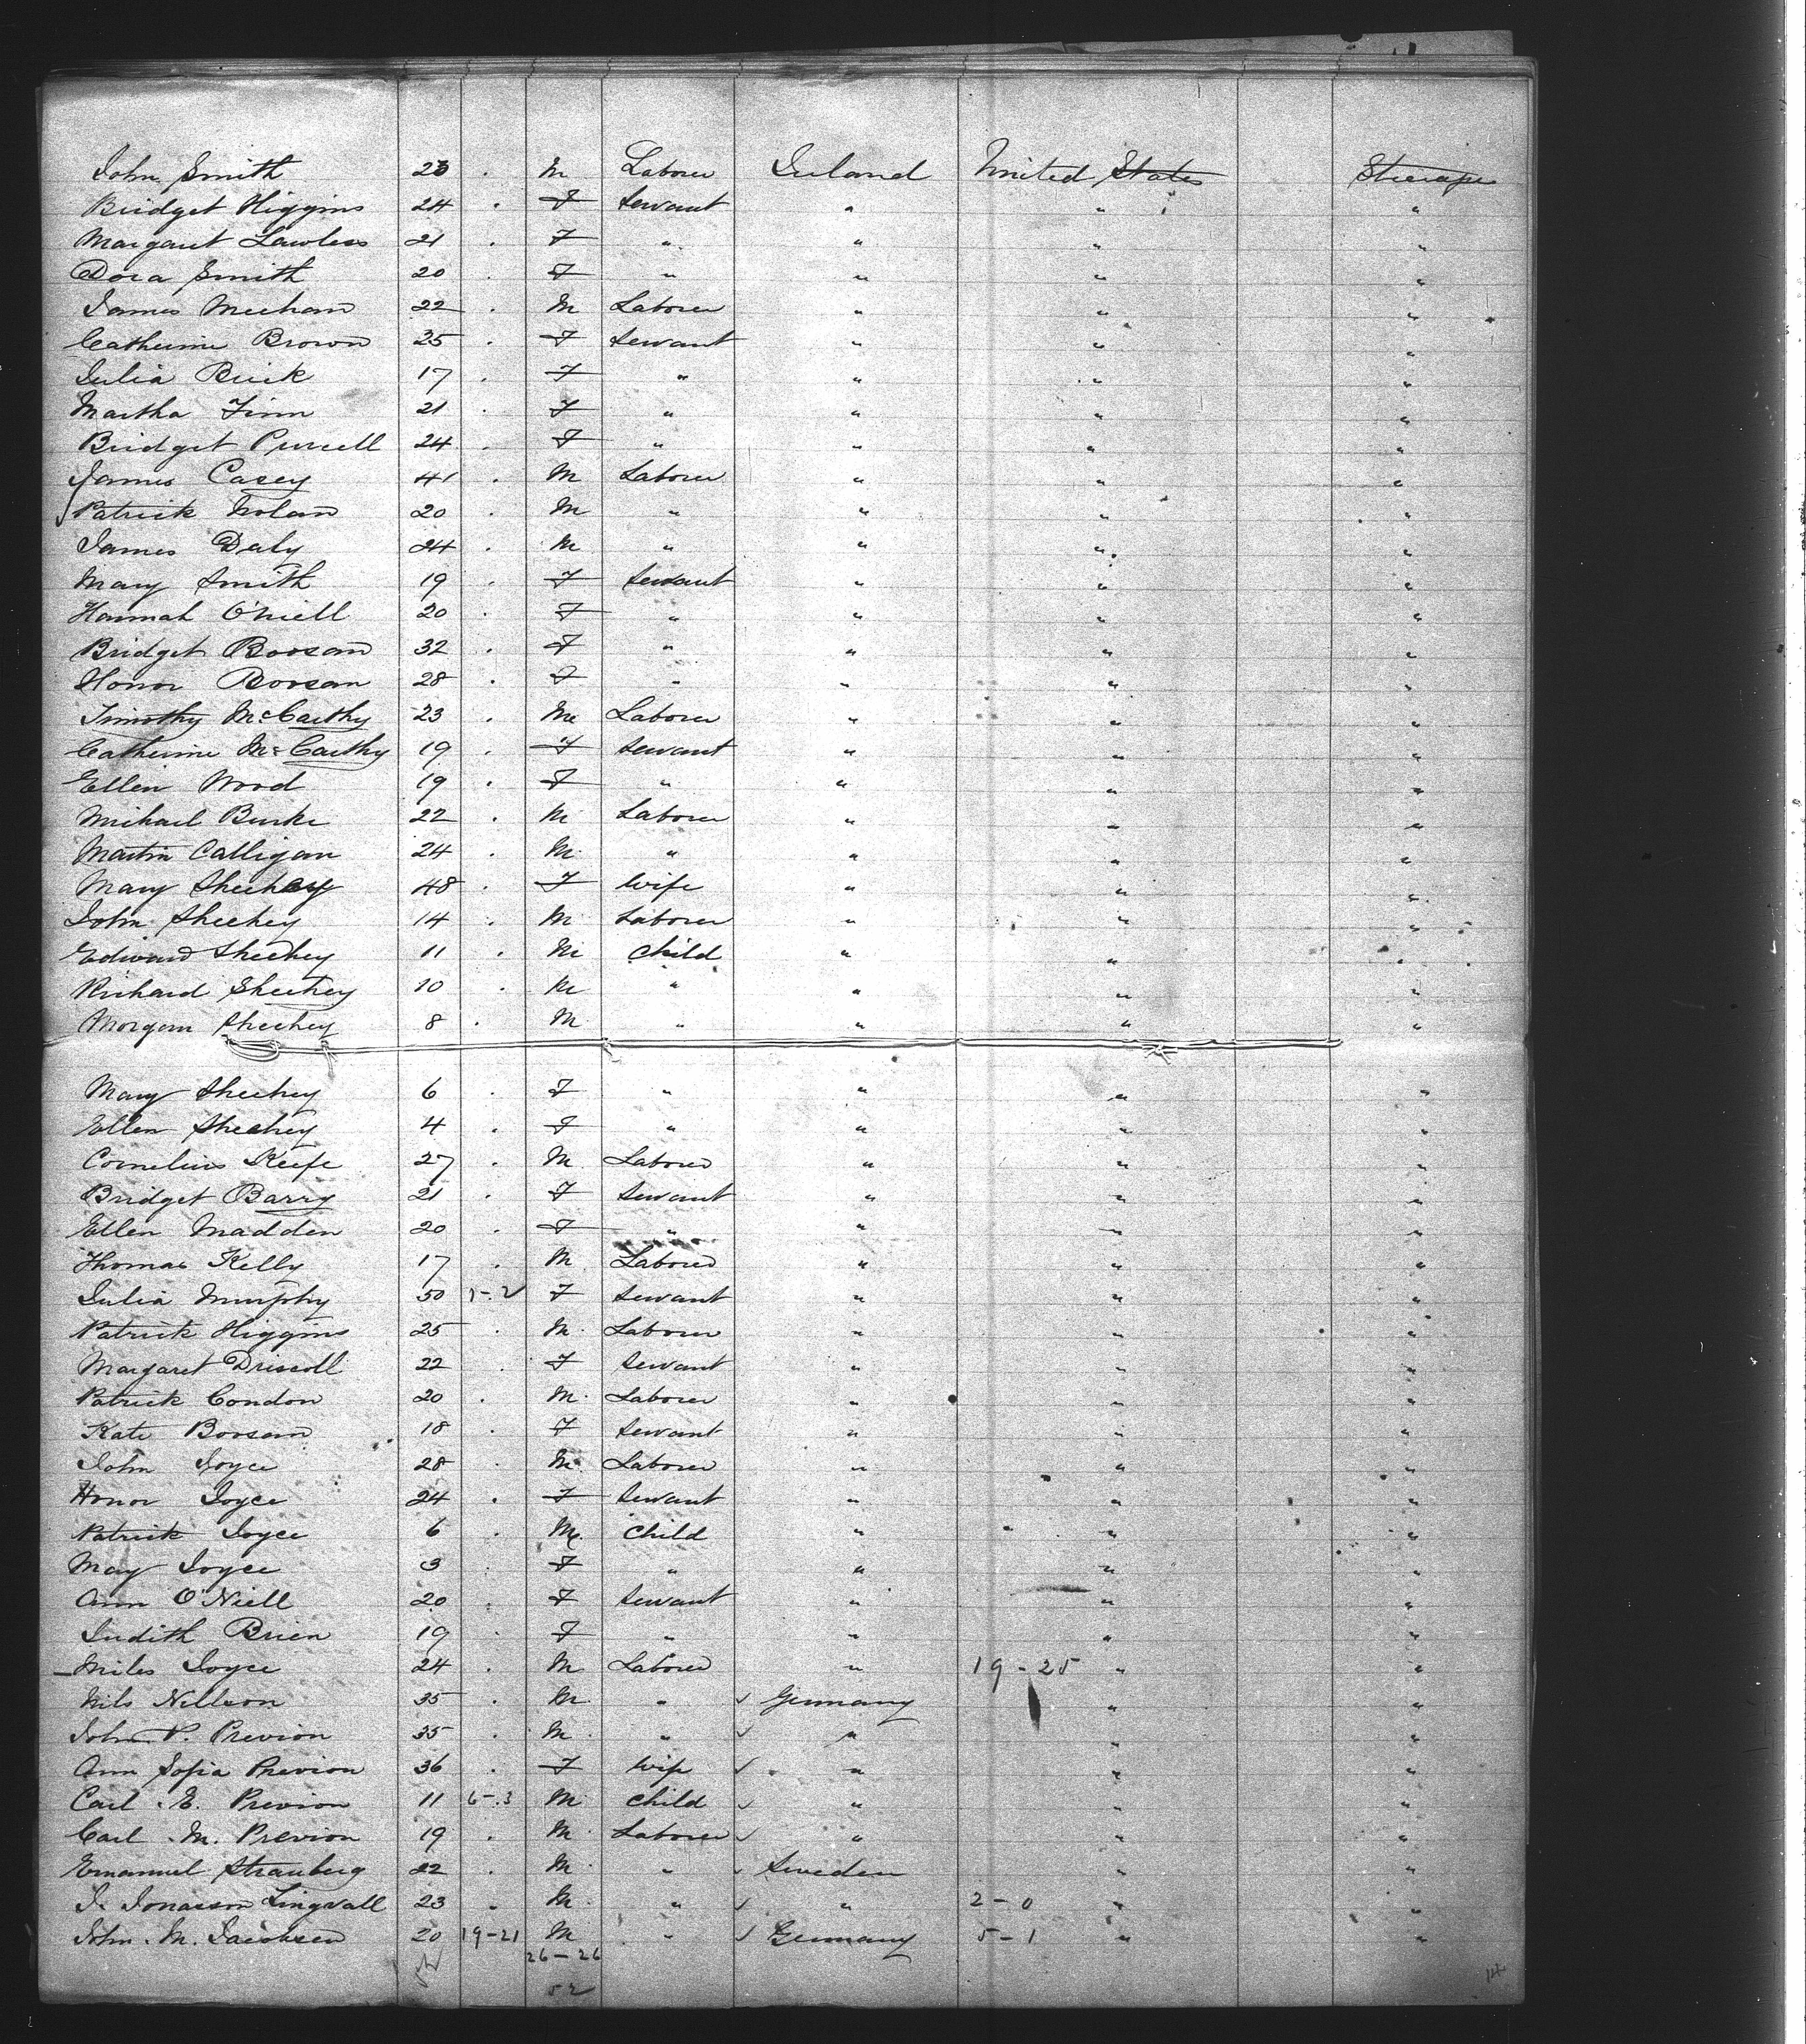 John Smith 23 . M Laborer Ireland United States Steerage
Bridget Higgins 24 . F Servant " " "
Margaret Lawless 21 . F " " " "
Dora Smith 20 . F " " " "
James Meehan 22 . M Laborer " " "
Catherine Brown 25 . F Servant " " "
Julia Brick 17 . F " " " "
Martha Finn 21 . F " " " "
Bridget Purcell 24 . F " " " "
James Casey 41 . M Laborer " " "
Patrick Nolan 20 . M " " " "
James Daly 24 . M " " " "
Mary Smith 19 . F Servant " " "
Hannah O'Niell 20 . F " " " "
Bridget Boosan 32 . F " " " "
Honor Boosan 28 . F " " " "
Timothy McCarthy 23 . M Laborer " " "
Catherine McCarthy 19 . F Servant " " "
Ellen Wood 19 . F " " " "
Michael Burke 22 . M Laborer " " "
Martin Calligan 24 . M " " " "
Mary Sheehey 48 . F Wife " " "
John Sheehey 14 . M Laborer " " "
Edward Sheehey 11 . M Child " " "
Richard Sheehey 10 . M " " " "
Morgan Sheehey 8 . M " " " "
Mary Sheehey 6 . F " " " "
Ellen Sheehey 4 . F " " " "
Cornelius Keefe 27 . M Laborer " " "
Bridget Barry 21 . F Servant " " "
Ellen Madden 20 . F " " " "
Thomas Kelly 17 . M Laborer " " "
Julia Murphy 50 5-2 F Servant " " "
Patrick Higgins 25 . M Laborer " " "
Margaret Driscoll 22 F Servant " " "
Patrick Condon 20 . M Laborer " " "
Kate Boosan 18 . F Servant " " "
John Joyce 28 . M Laborer " " "
Honor Joyce 24 . F Servant " " "
Patrick Joyce 6 . M Child " " "
May Joyce 3 . F " " " "
Ann O'Niell 20 . F Servant " " "
Judith Brien 19 . F " " " "
Miles Joyce 24 . M Laborer " 19-25 " "
Nils Nillson 35 . M " ✓ Germany " "
John P. Previon 35 . M " ✓ " " "
Ann Sofia Previon 36 . F Wife ✓ " " "
Carl E. Previon 11 6-3 M Child ✓ " " "
Carl M. Previon 19 . M Laborer ✓ " " "
Emanuel Strauberg 22 . M " ✓ Sweden " "
J. Jonasson Lingvall 23 . M " ✓ " 2-0 " "
John M. Jacobsen 20 19-21 M " ✓ Germany 5-1 " "
52 26-26
52
14